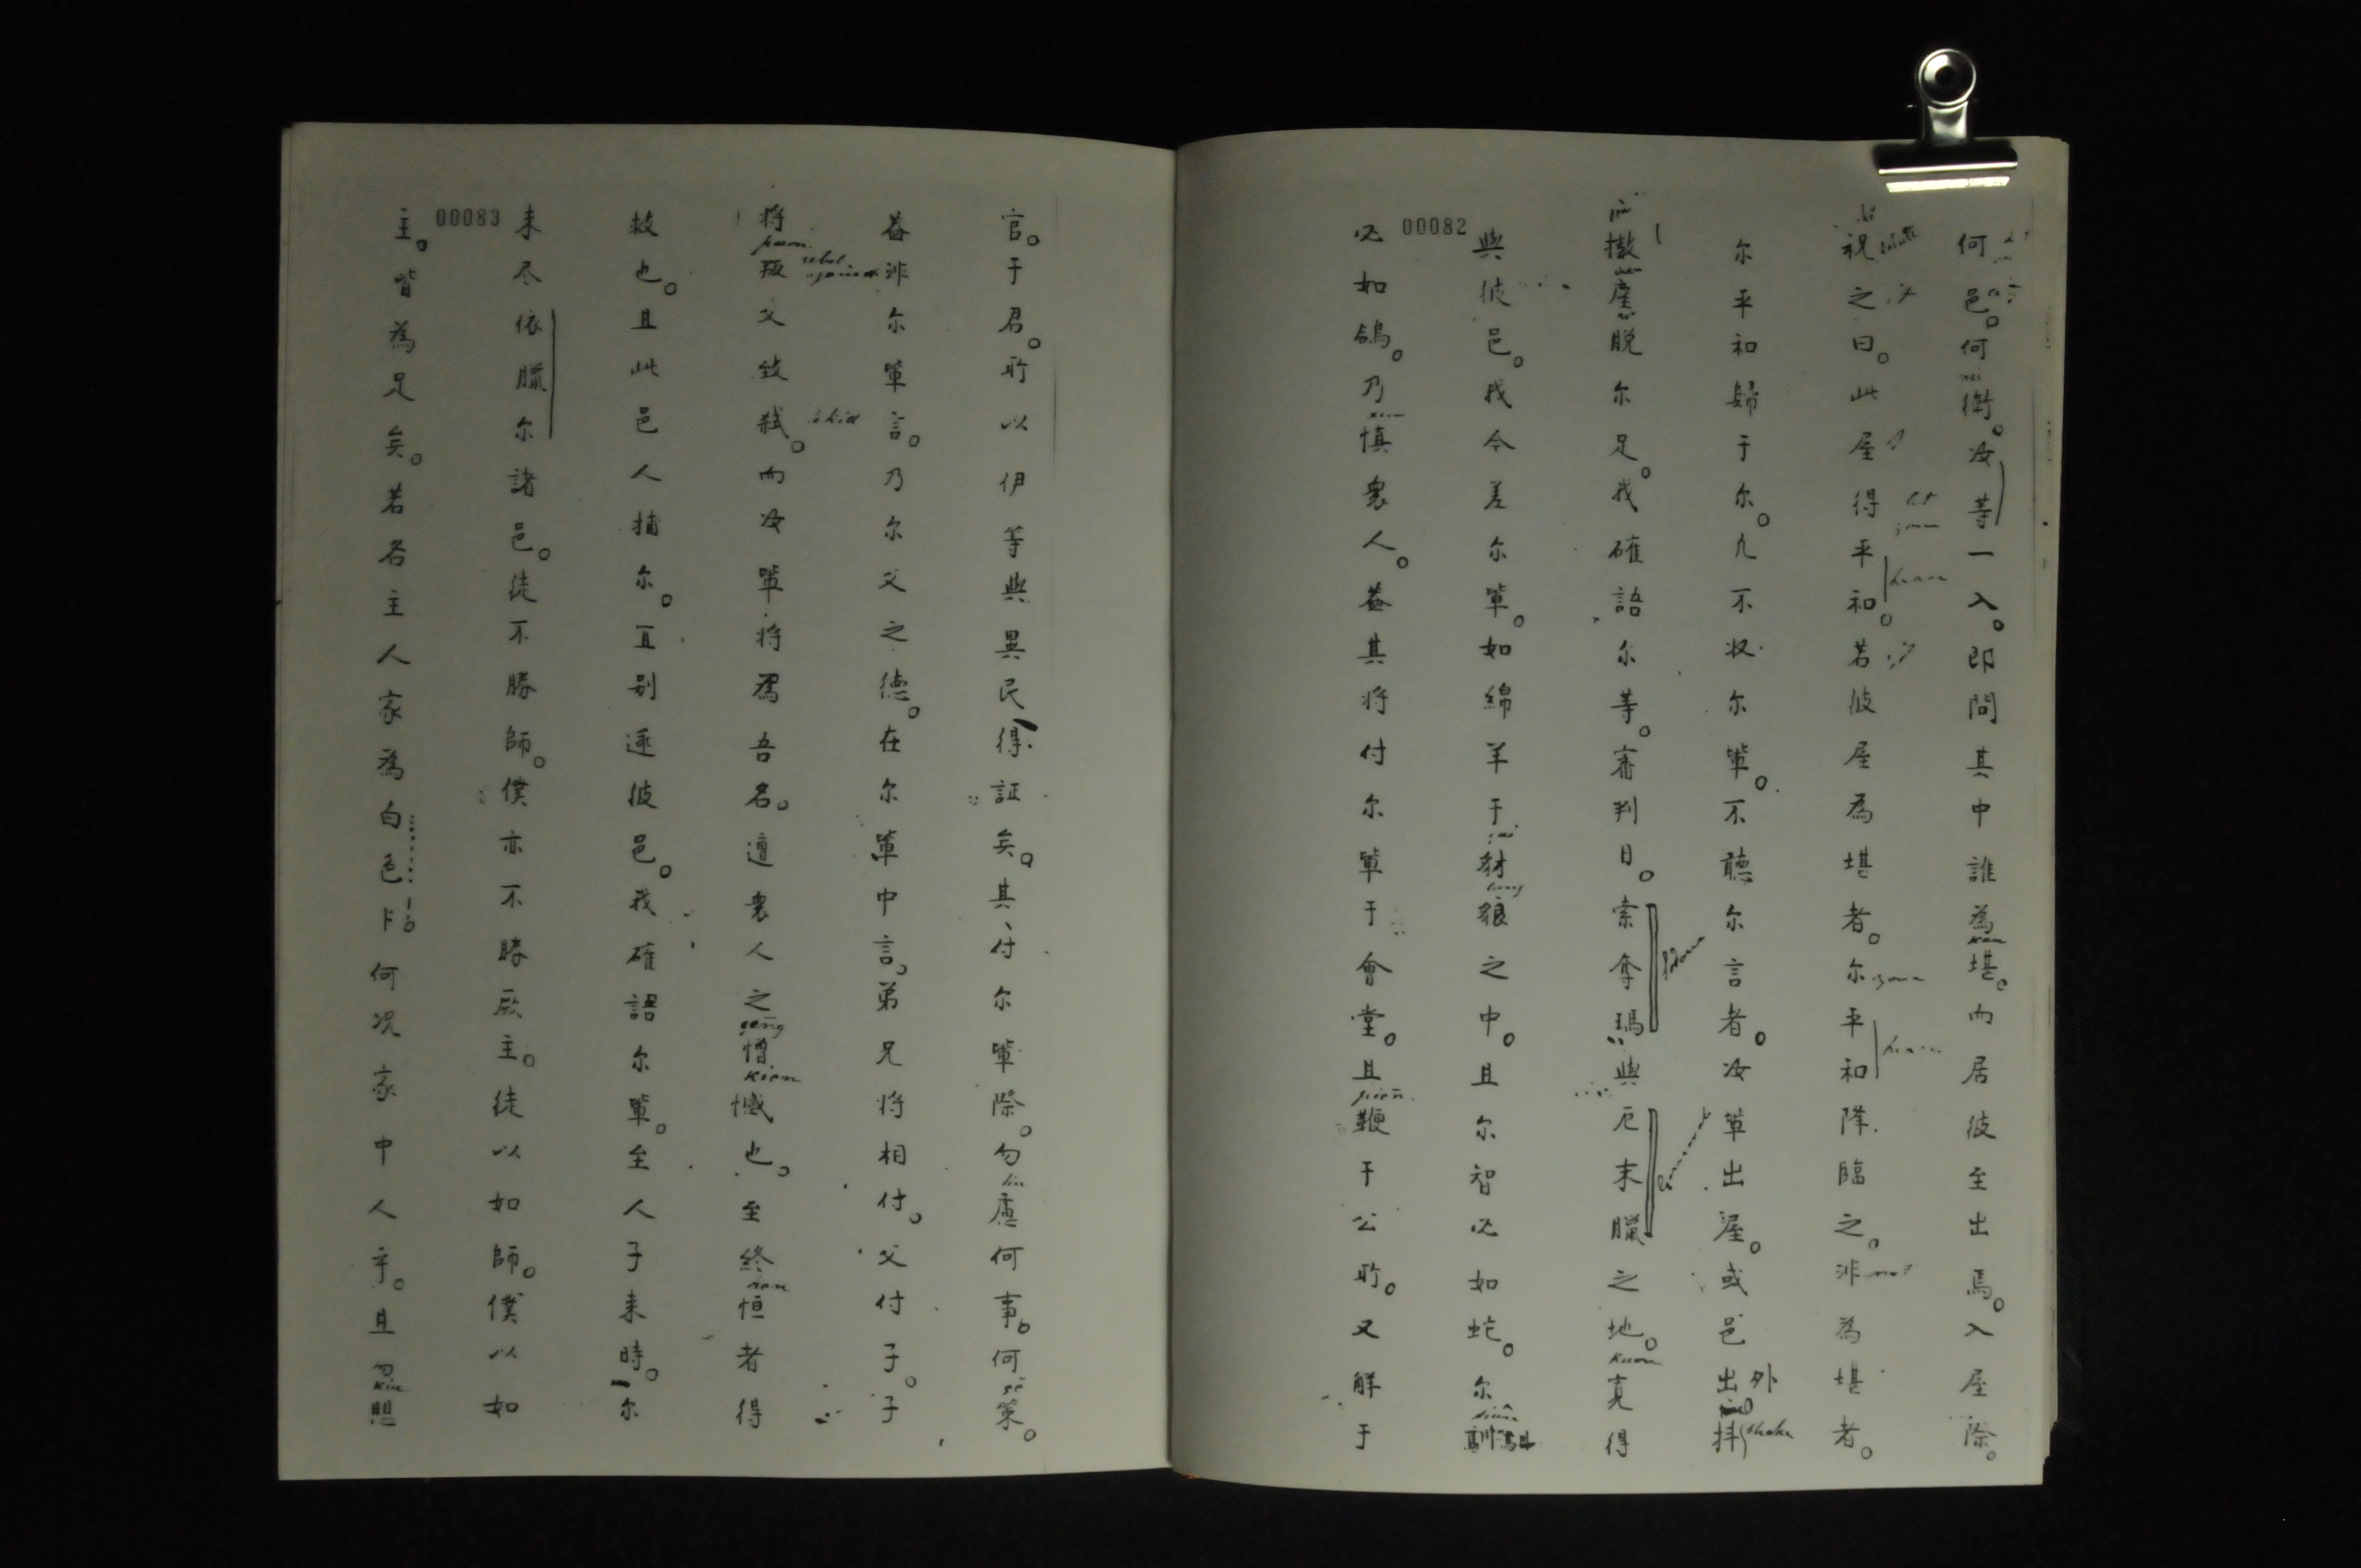 00082
何邑。何衛。汝等一入。即問其中誰為堪。而居彼至出焉。入屋際。
祝之曰。此屋得平和。若彼屋為堪者。尔平和降臨之。非為堪者。
尔平和歸于尔。凡不收尔輩。不聽尔言者。汝輩出屋。或邑出外抖
撒塵脫尔足。我確語尔等。審判日。索奪瑪與厄末臘之地。寬得
與彼邑。我今差尔輩。如綿羊于豺狼之中。且尔智必如蛇。尔馴
必如鴿。乃慎衆人。蓋其將付尔輩于會堂。且鞭于公所。又解于
00083
官。于君。所以伊等與異民得証矣。其付尔輩際。勿慮何事。何策。
蓋非尔輩言。乃尔父之德。在尔輩中言。弟兄將相付。父付子。子
將叛父致弒。而汝輩將為吾名。遭衆人之憎憾也。至終恒者得
救也。且此邑人捕尔。宜別逐彼邑。我確語尔輩。至人子来時。尔
未尽依臘尔諸邑。徒不勝師。僕亦不勝厥主。徒以如師。僕以如
主。皆為足矣。若名主人家為白色卜。何况家中人乎。且勿